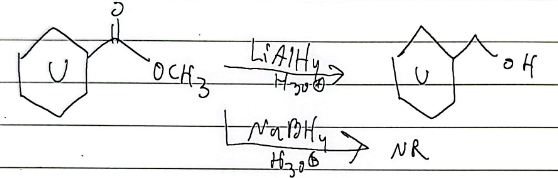 O
OCH3
LiAlH4
H3O⊕
OH
NaBH4
H3O⊕
NR